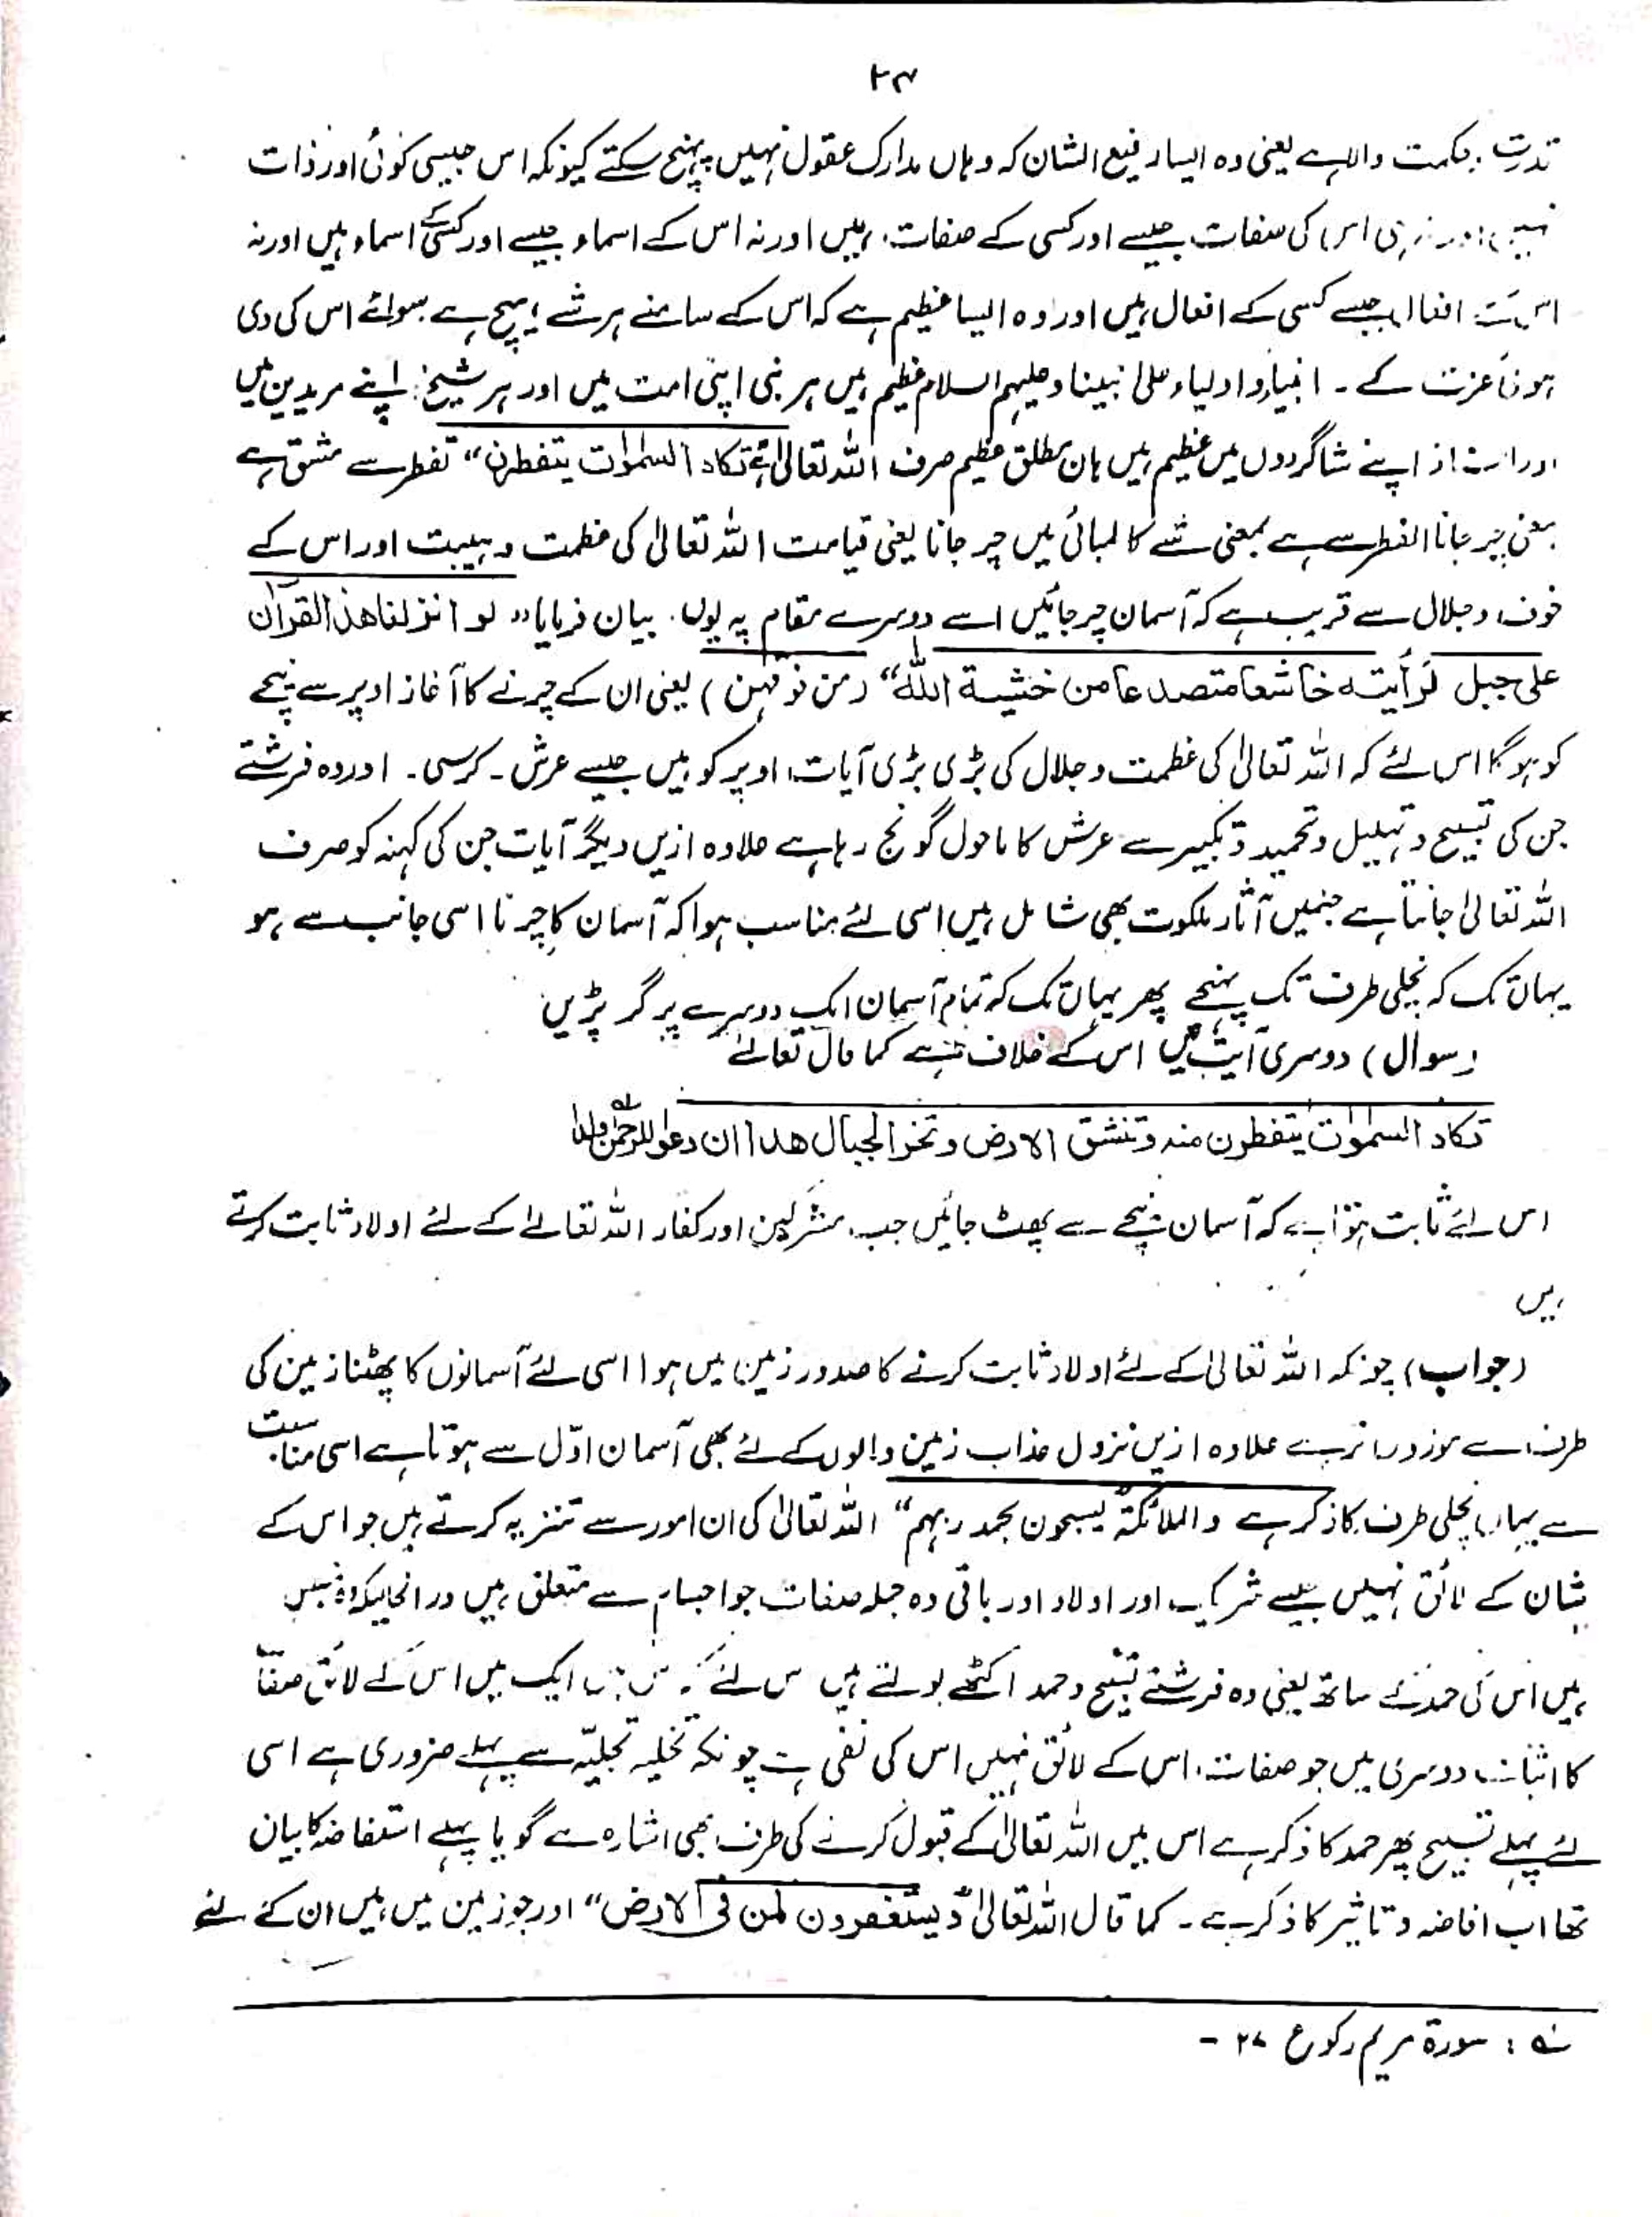 ۲۴
قدرت و حکمت والا ہے یعنی وہ ایسا رفیع الشان کہ وہاں مدارک عقول نہیں پہنچ سکتے کیونکہ اس جیسی کوئی اور ذات
نہیں اور نہ ہی اس کی صفات جیسے اور کسی کے صفات ہیں اور نہ اس کے اسماء جیسے اور کسی کے اسماء ہیں اور نہ
اس کے افعال جیسے کسی کے افعال ہیں اور وہ ایسا عظیم ہے کہ اس کے سامنے ہر شے ہیچ ہے بسوائے اس کی دی
ہوئی عزت کے ۔ انبیاء و اولیاء علی نبینا و علیہم السلام عظیم ہیں ہر نبی اپنی امت میں اور ہر شیخ اپنے مریدین میں
اور استاذ اپنے شاگردوں میں عظیم ہیں ہاں مطلق عظیم صرف اللہ تعالیٰ ہے تکاد السمٰوات یتفطرن“ تفطر سے مشتق ہے
بمعنی چر جانا الفطر سے ہے بمعنی شے کا لمبائی میں چر جانا یعنی قیامت اللہ تعالیٰ کی عظمت و ہیبت اور اس کے
خوف و جلال سے قریب ہے کہ آسمان چر جائیں اسے دوسرے مقام پہ یوں بیان فرمایا ”لو انزلنا ھذا القرآن
علی جبل لرأیتہ خاشعا متصدعا من خشیۃ اللہ“ (من فوقہن) یعنی ان کے چرنے کا آغاز اوپر سے نیچے
کو ہوگا اس لئے کہ اللہ تعالیٰ کی عظمت و جلال کی بڑی بڑی آیات اوپر کو ہیں جیسے عرش ۔ کرسی ۔ اور وہ فرشتے
جن کی تسبیح و تہلیل و تحمید و تکبیر سے عرش کا ماحول گونج رہا ہے علاوہ ازیں دیگر آیات جن کی کہنہ کو صرف
اللہ تعالیٰ جانتا ہے جنہیں آثار ملکوت بھی شامل ہیں اسی لئے مناسب ہوا کہ آسمان کا چرنا اسی جانب سے ہو
یہاں تک کہ نچلی طرف تک پہنچے پھر یہاں تک کہ تمام آسمان ایک دوسرے پر گر پڑیں
(سوال) دوسری آیت میں اس کے خلاف ہے کما قال تعالےٰ
تکاد السمٰوات یتفطرن منہ و تنشق الارض و تخر الجبال ھدا ان دعوا للرحمٰن ولدا ؎۱
اس لئے ثابت ہوتا ہے کہ آسمان نیچے سے پھٹ جائیں جب مشرکین اور کفار اللہ تعالےٰ کے لئے اولاد ثابت کرتے
ہیں
(جواب) چونکہ اللہ تعالیٰ کے لئے اولاد ثابت کرنے کا صدور زمین میں ہوا اسی لئے آسمانوں کا پھٹنا زمین کی
طرف سے موزوں تر ہے علاوہ ازیں نزول عذاب زمین والوں کے لئے بھی آسمان اوّل سے ہوتا ہے اسی مناسبت
سے یہاں نچلی طرف کا ذکر ہے والملائکۃ یسبحون بحمد ربہم“ اللہ تعالیٰ کی ان امور سے تنزیہ کرتے ہیں جو اس کے
شان کے لائق نہیں جیسے شریک اور اولاد اور باقی وہ جملہ صفات جو اجسام سے متعلق ہیں درانحالیکہ وہ
ہیں اس کی حمد کے ساتھ یعنی وہ فرشتے تسبیح و حمد اکٹھے بولتے ہیں اس لئے کہ ایک میں اس کے لائق صفات
کا اثبات دوسری میں جو صفات اس کے لائق نہیں اس کی نفی ہے چونکہ تخلیہ تحلیہ سے پہلے ضروری ہے اسی
لئے پہلے تسبیح پھر حمد کا ذکر ہے اس میں اللہ تعالیٰ کے قبول کرنے کی طرف بھی اشارہ ہے گویا پہلے استفاضہ کا بیان
تھا اب افاضہ و تاثیر کا ذکر ہے ۔ کما قال اللہ تعالیٰ و یستغفرون لمن فی الارض“ اور جو زمین میں ہیں ان کے لئے
؎۱ : سورۃ مریم رکوع ۲۷ -